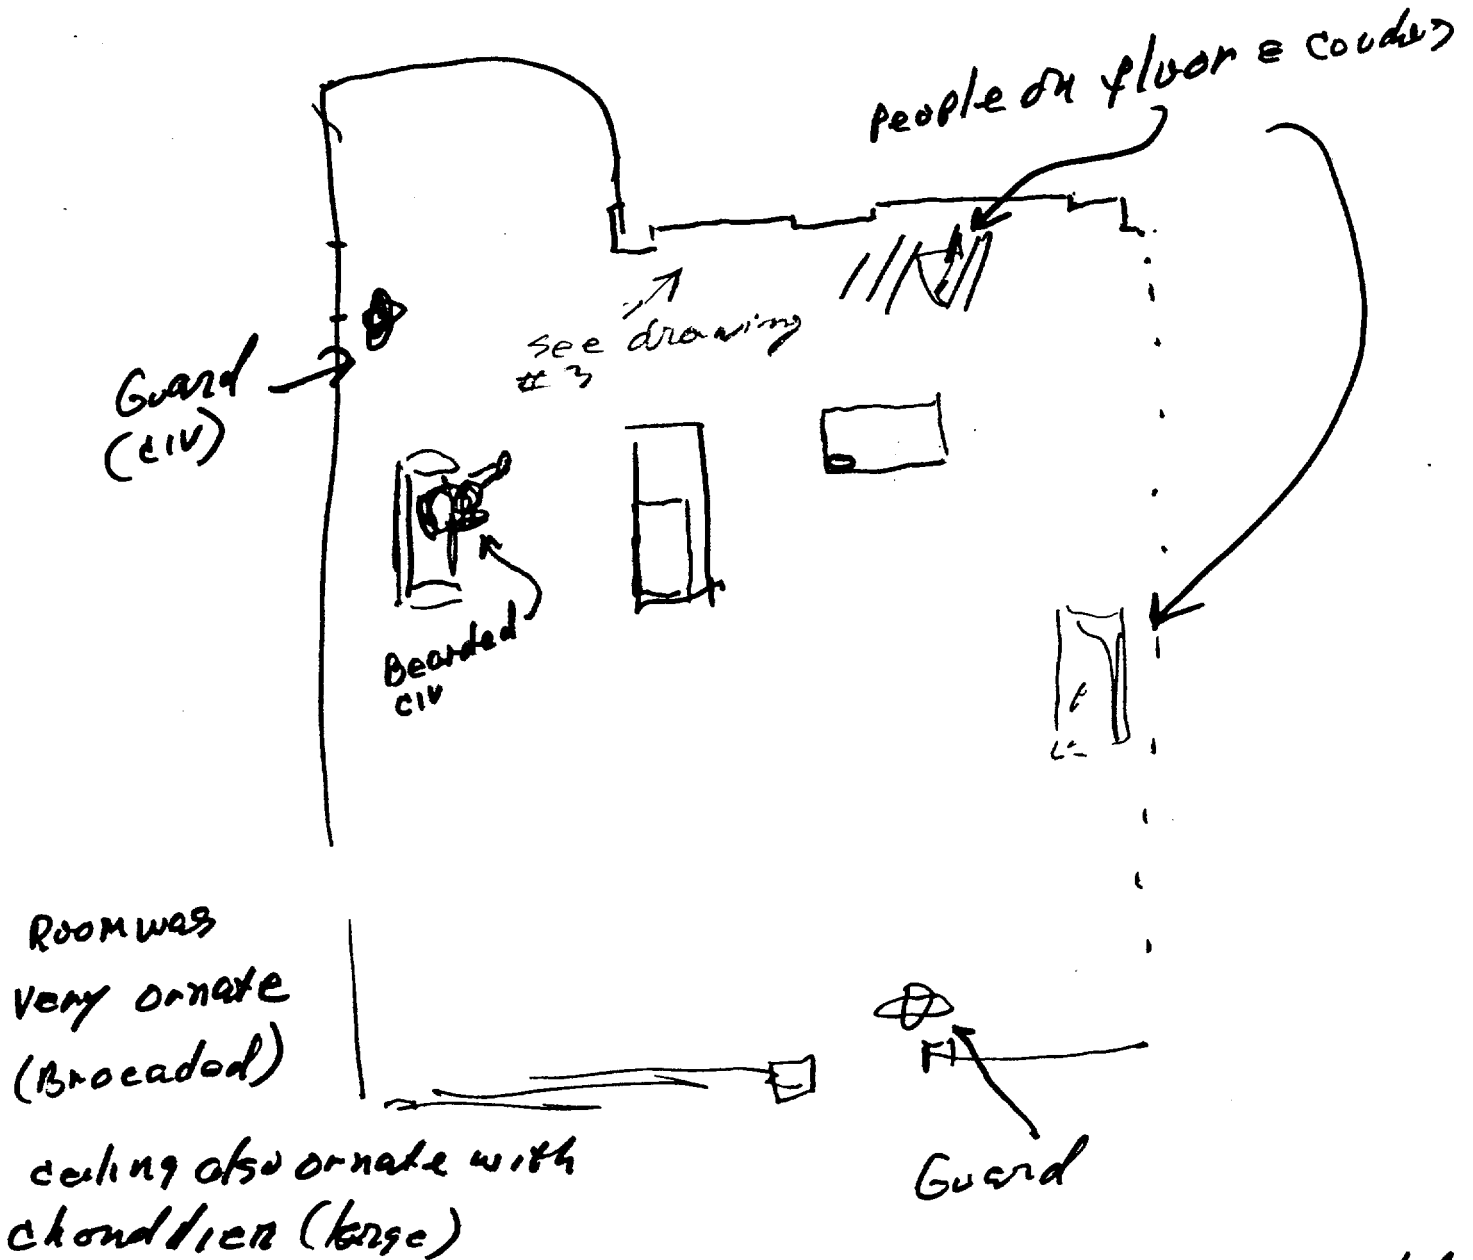 People on floor & couches
see drawing
#3
Guard
(CIV)
Bearded
CIV
Room was
very ornate
(Brocaded)
ceiling also ornate with
chandlier (large)
Guard